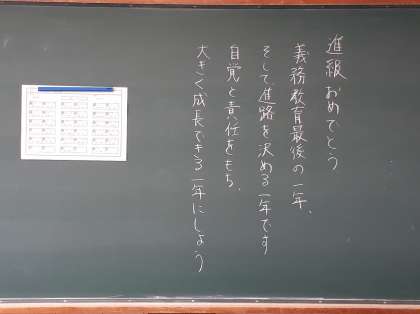 進級おめでとう
義務教育最後の一年、
そして進路を決める一年です
自覚と責任をもち、
大きく成長できる一年にしよう